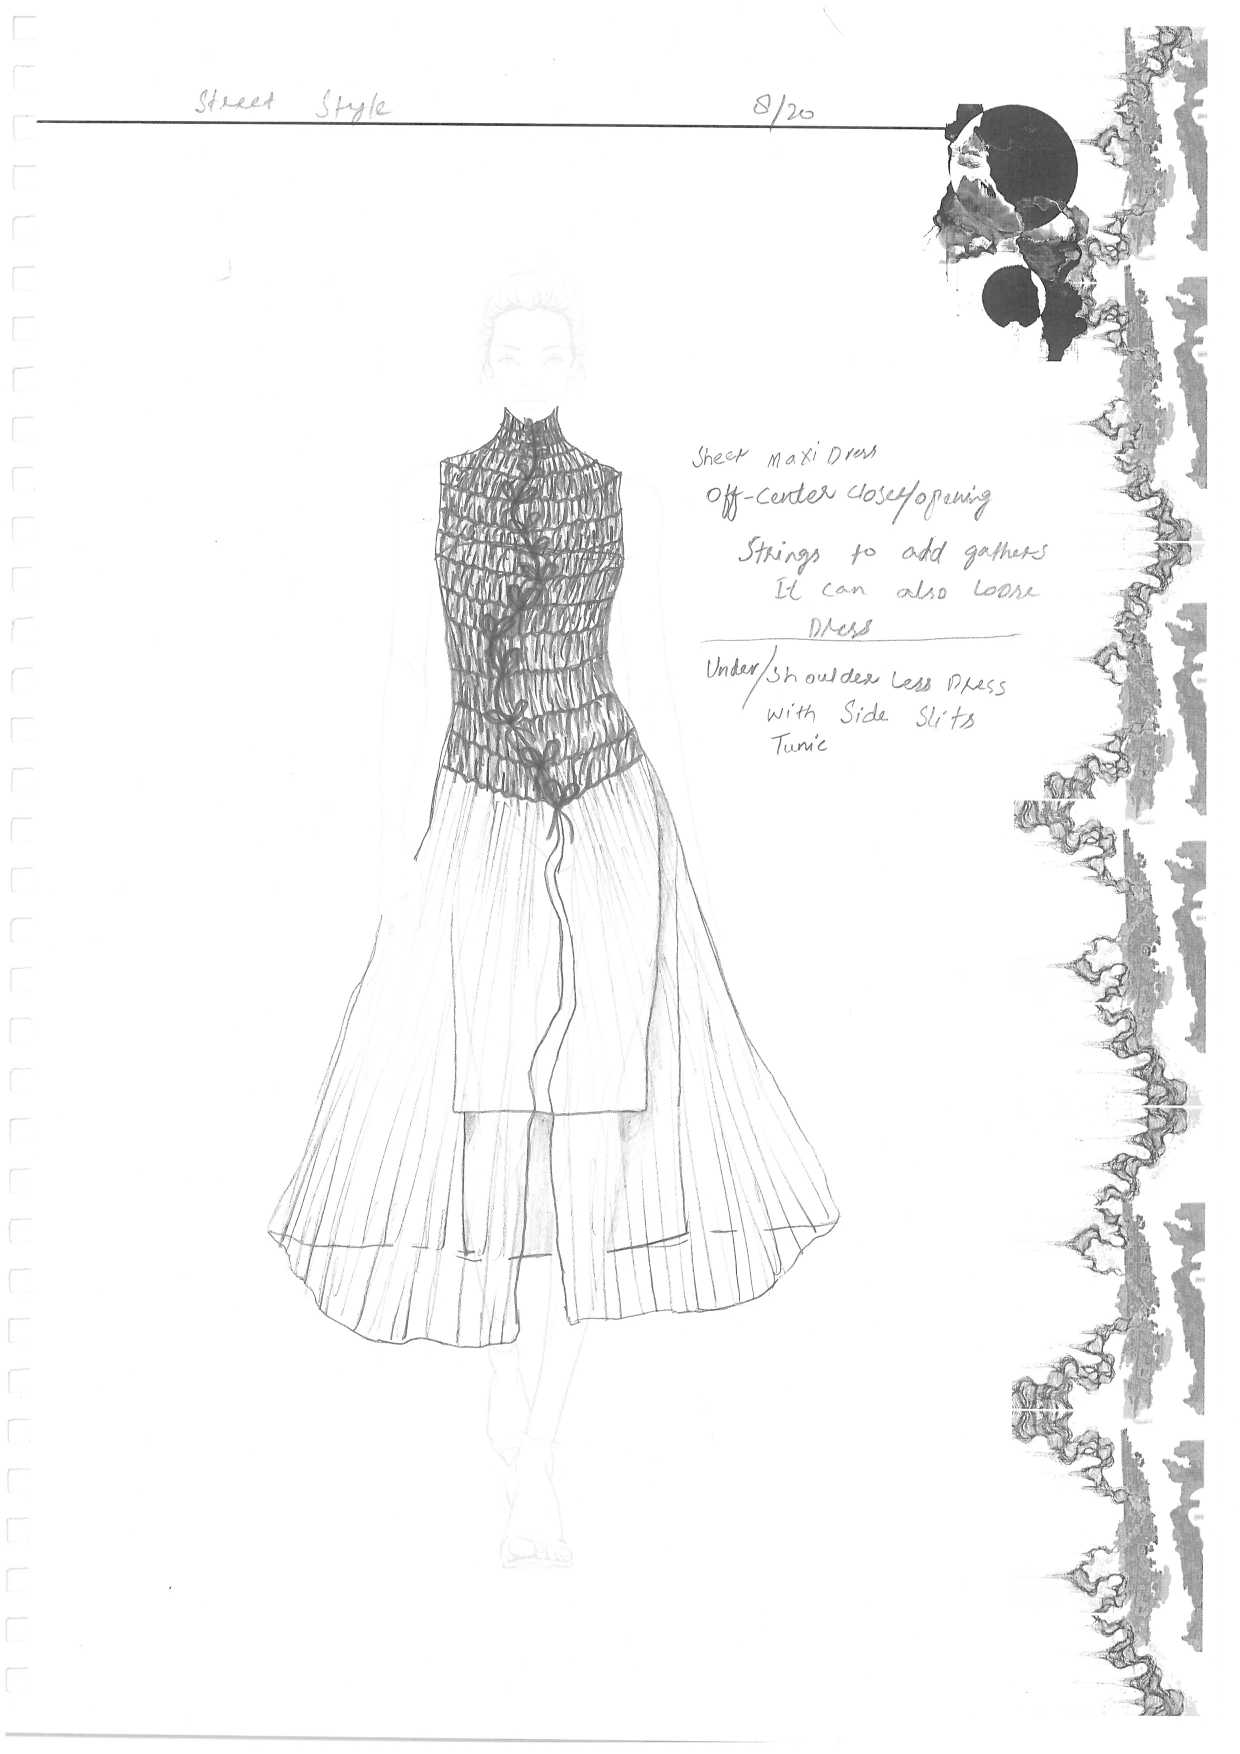 Street Style
8/20
Sheer Maxi Dress
Off-center closer/opening
Strings to add gathers
It can also Loose
Dress
Under/Shoulder Less Dress
with Side Slits
Tunic